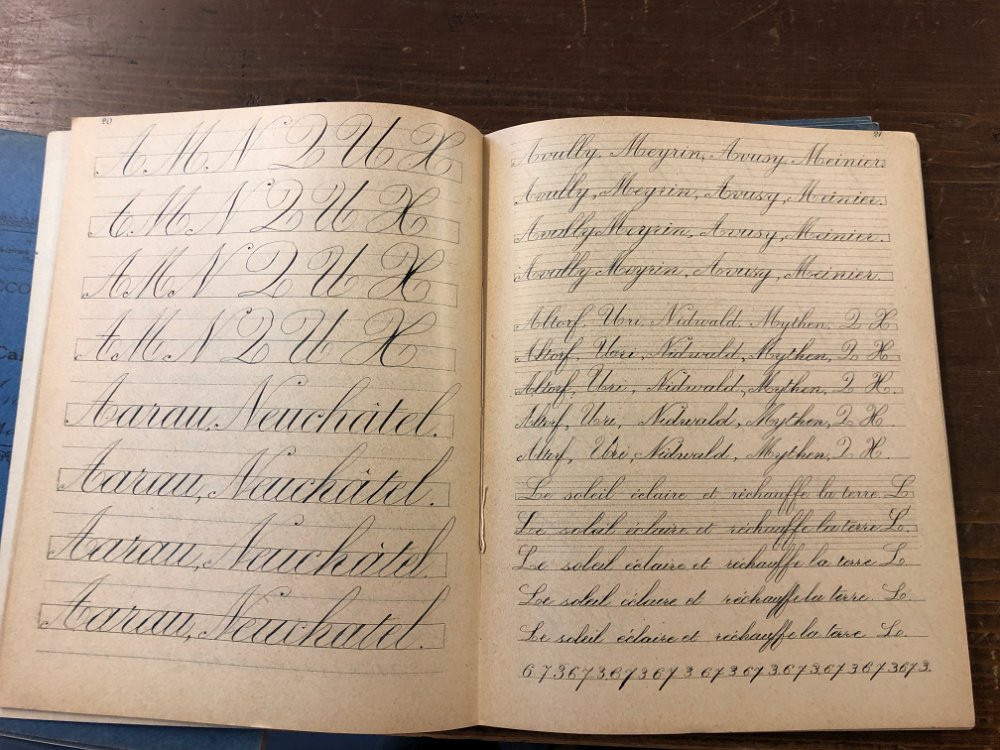 20
A M N Q U X
A M N Q U X
A M N Q U X
A M N Q U X
Aarau, Neuchâtel.
Aarau, Neuchâtel.
Aarau, Neuchâtel.
Aarau, Neuchatel.
21
Avully, Meyrin, Avusy, Meinier.
Avully, Meyrin, Avusy, Meinier.
Avully Meyrin, Avusy, Meinier.
Avully Meyrin, Avusy, Meinier.
Altorf, Uri, Nidwald, Mythen, Q X
Altorf, Uri, Nidwald, Mythen, Q X.
Altorf, Uri, Nidwald, Mythen, Q X.
Altorf, Uri, Nidwald, Mythen, Q X.
Altorf, Uri, Nidwald, Mythen, Q X.
Le soleil éclaire et réchauffe la terre. L
Le soleil éclaire et réchauffe la terre. L.
Le soleil éclaire et réchauffe la terre L.
Le soleil éclaire et réchauffe la terre. L.
Le soleil éclaire et réchauffe la terre L.
6 7 3 6 7 3. 6 7 3 6 7 3 6 7 3 6 7 3. 6 7 3. 6 7 3 6 7 3 6 7 3.